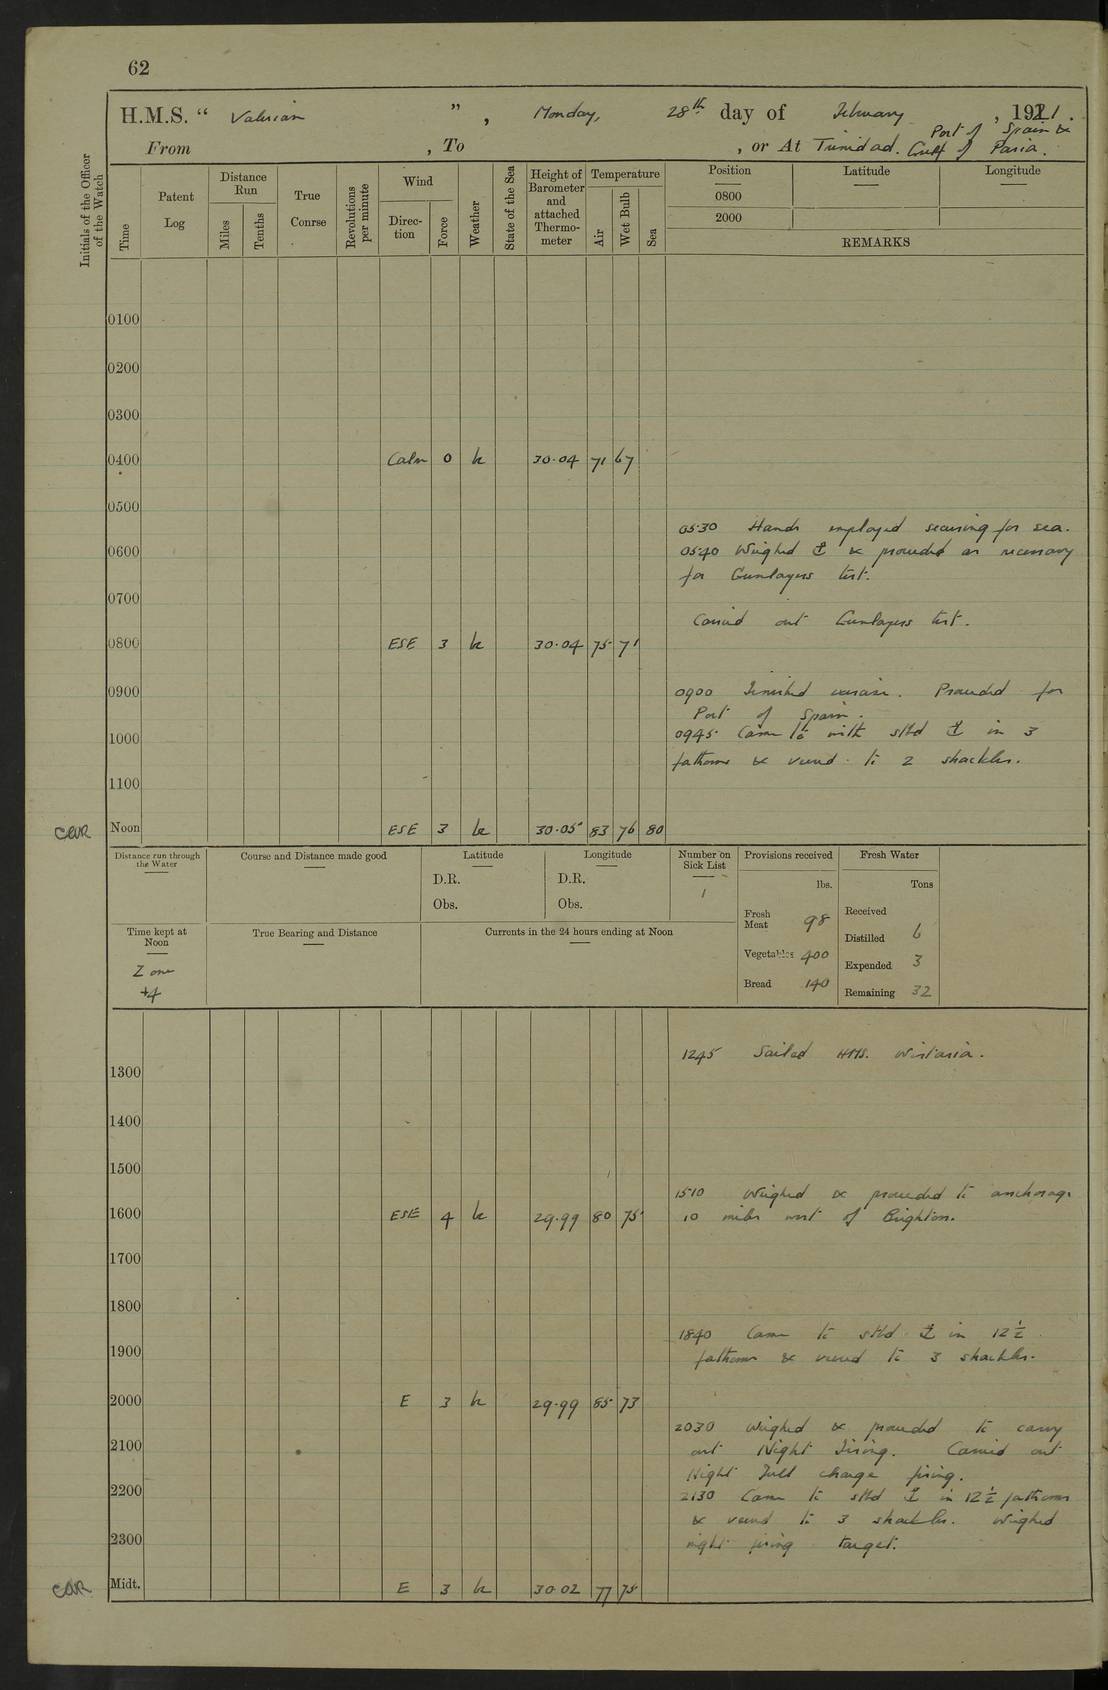 62
H.M.S. “ Valerian ” , Monday, 28th day of February , 1921.
From , To , or At Trinidad. Port of Spain & Gulf of Paria.
Initials of the Officer of the Watch
Time
Patent Log
Distance Run
Miles
Tenths
True Course
Revolutions per minute
Wind
Direction
Force
Weather
State of the Sea
Height of Barometer and attached Thermometer
Temperature
Air
Wet Bulb
Sea
Position
Latitude
Longitude
0800
2000
REMARKS
0100
0200
0300
0400 Calm 0 b 30.04 71 67
0500
0530 Hands employed securing for sea.
0600
0540 Weighed ⚓ & proceeded as necessary
for Gunlayers test.
0700
Carried out Gunlayers test.
0800 ESE 3 b 30.04 75 71
0900
0900 Finished exercise. Proceeded for
Port of Spain.
1000
0945 Came to with stbd ⚓ in 3
fathoms & veered to 2 shackles.
1100
CWR Noon ESE 3 b 30.05 83 76 80
Distance run through the Water
Course and Distance made good
Latitude
D.R.
Obs.
Longitude
D.R.
Obs.
Number on Sick List
1
Provisions received
lbs.
Fresh Meat 98
Vegetables 400
Bread 140
Fresh Water
Tons
Received
Distilled 6
Expended 3
Remaining 32
Time kept at Noon
Zone
+4
True Bearing and Distance
Currents in the 24 hours ending at Noon
1245 Sailed HMS. Wistaria.
1300
1400
1500
1510 Weighed & proceeded to anchorage
1600 ESE 4 b 29.99 80 75
10 miles west of Brighton.
1700
1800
1840 Came to stbd ⚓ in 12½
1900
fathoms & veered to 3 shackles.
2000 E 3 b 29.99 85 73
2030 Weighed & proceeded to carry
2100
out Night Firing. Carried out
Night Full charge firing.
2200
2130 Came to stbd ⚓ in 12½ fathoms
& veered to 3 shackles. Weighed
2300
night firing target.
Midt. E 3 b 30.02 77 75